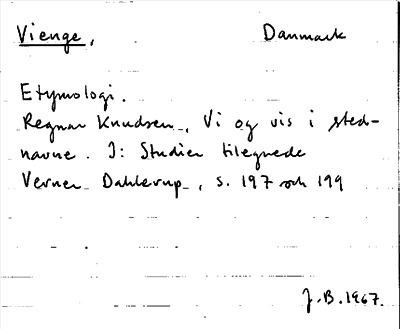 Vienge, Danmark
Etymologi.
Regnar Knudsen, Vi og vis i sted-
navne. I: Studier tilegnede
Verner Dahlerup, s. 197 och 199
J.B. 1967.